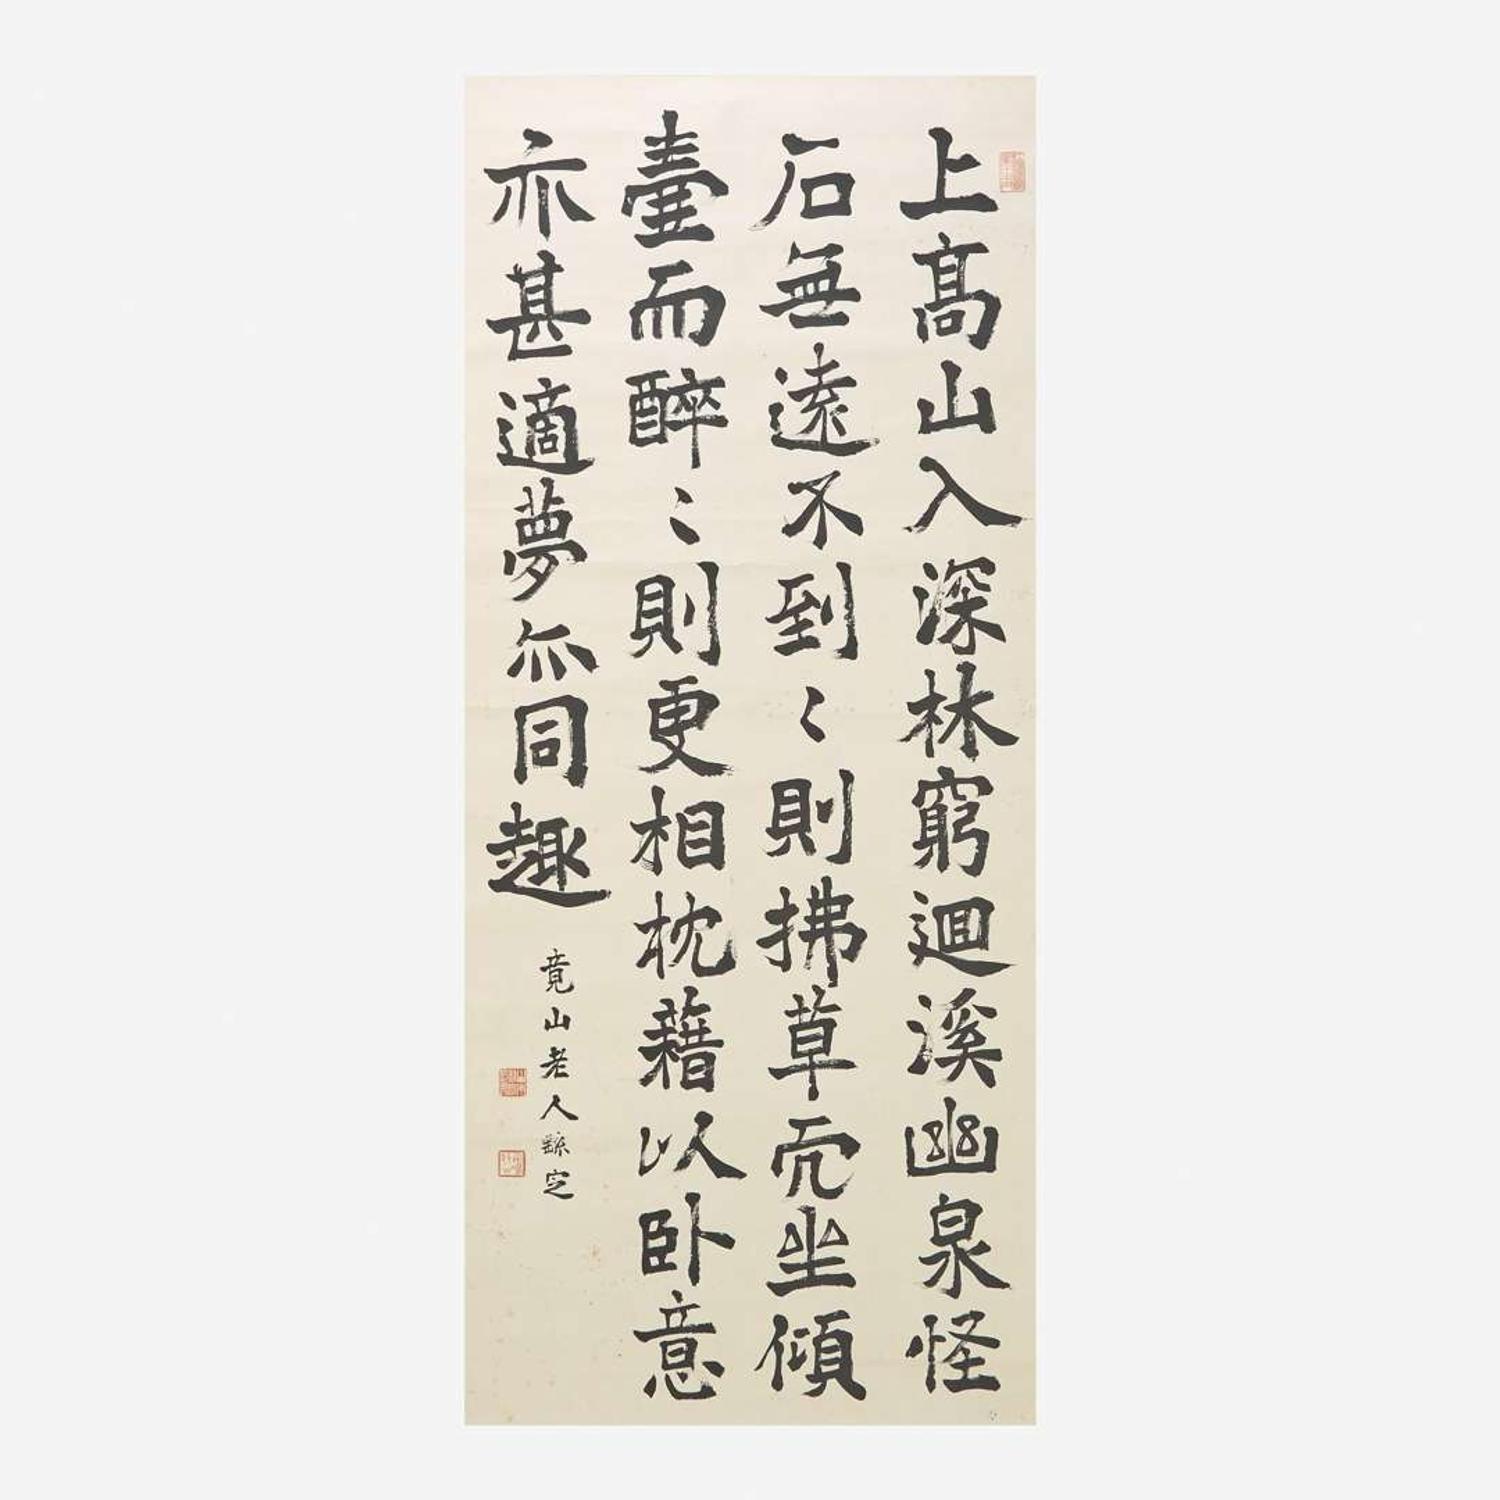 上高山入深林窮迴溪幽泉怪
石無遠不到〻則拂草而坐傾
壷而醉〻則更相枕藉以卧意
亦甚適夢亦同趣
竟山老人